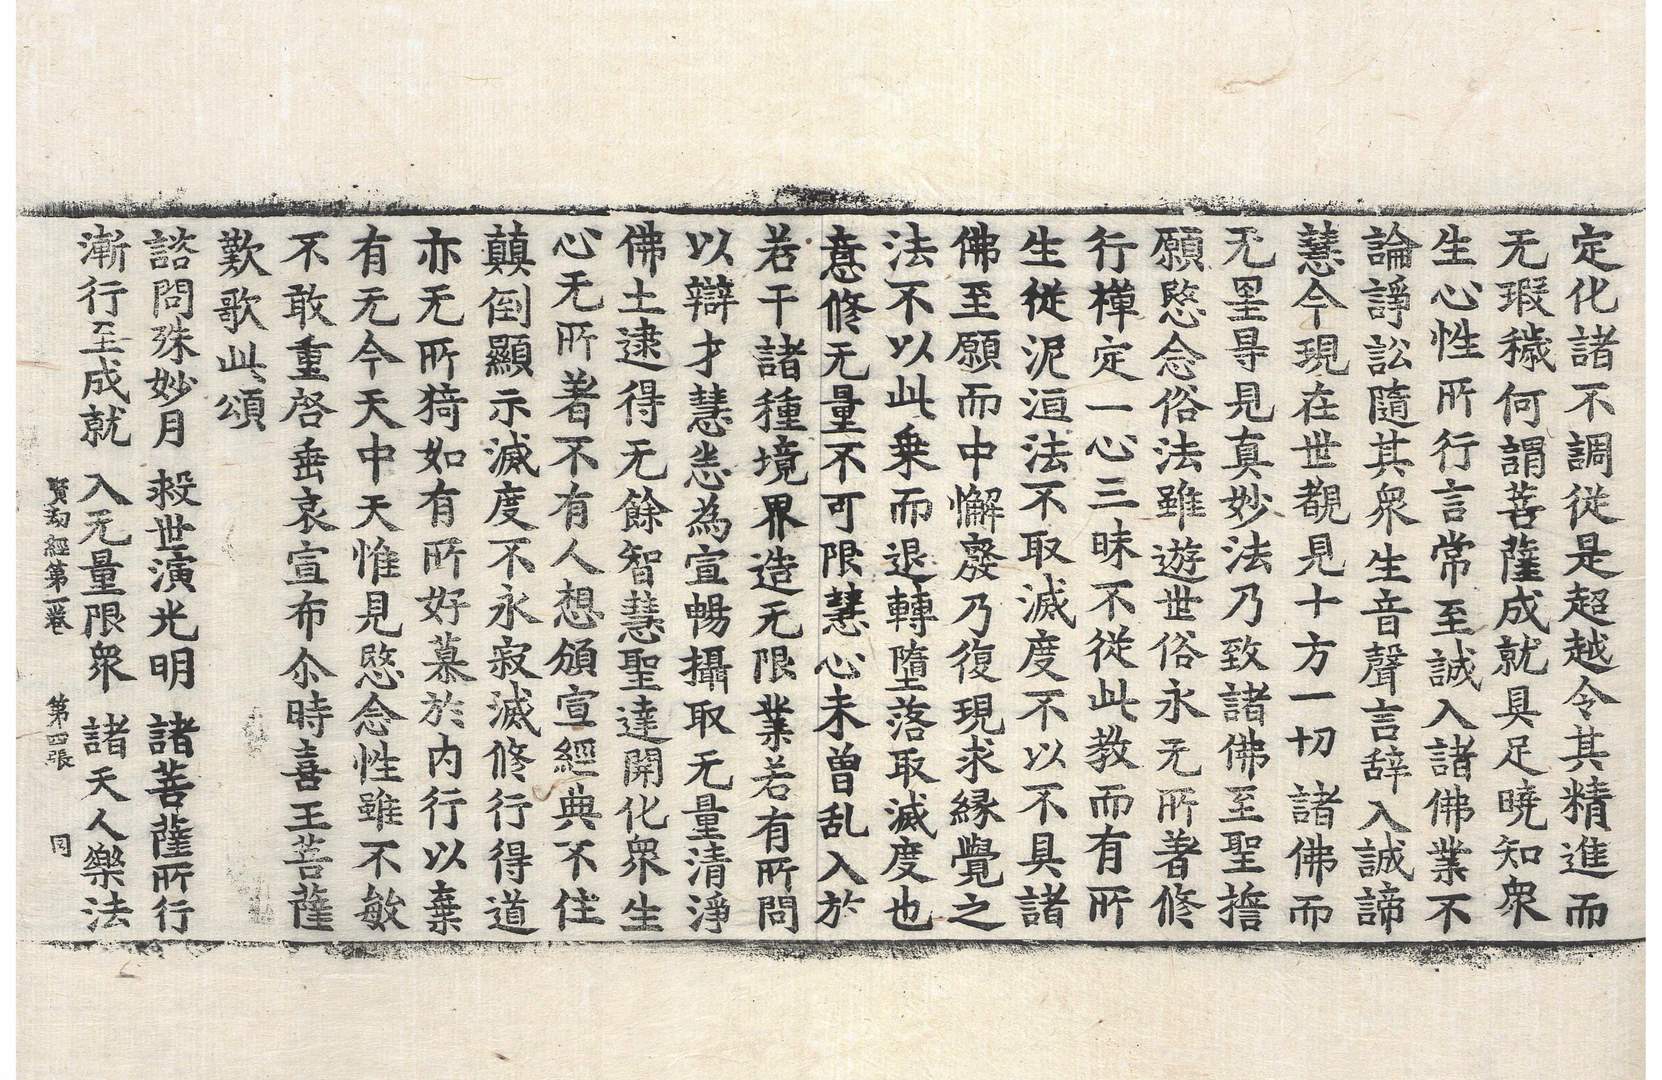 定化諸不調従是超越令其精進而
无瑕穢何謂菩薩成就具足曉知衆
生心性所行言常至誠入諸佛業不
論諍訟隨其衆生音聲言辞入誠諦
慧今現在世覩見十方一切諸佛而
无罣导見真妙法乃致諸佛至聖擔
願愍念俗法雖遊世俗永无所著修
行禪定一心三昧不従此教而有所
生従泥洹法不取滅度不以不具諸
佛至願而中懈廢乃復現求縁覺之
法不以此乗而退轉墮落取滅度也
意修无量不可限慧心未曽乱入於
若干諸種境界造无限業若有所問
以辯才慧悉為宣暢攝取无量清淨
佛土逮得无餘智慧聖達開化衆生
心无所著不有人想頒宣經典不住
顛倒顯示滅度不永寂滅修行得道
亦无所猗如有所好慕於内行以棄
有无今天中天惟見愍念性雖不敏
不敢重啓垂哀宣布尒時喜王菩薩
歎歌此頌
諮問殊妙月 救世演光明 諸菩薩所行
漸行至成就 入无量限衆 諸天人樂法
賢劫經第一卷 第四張 同